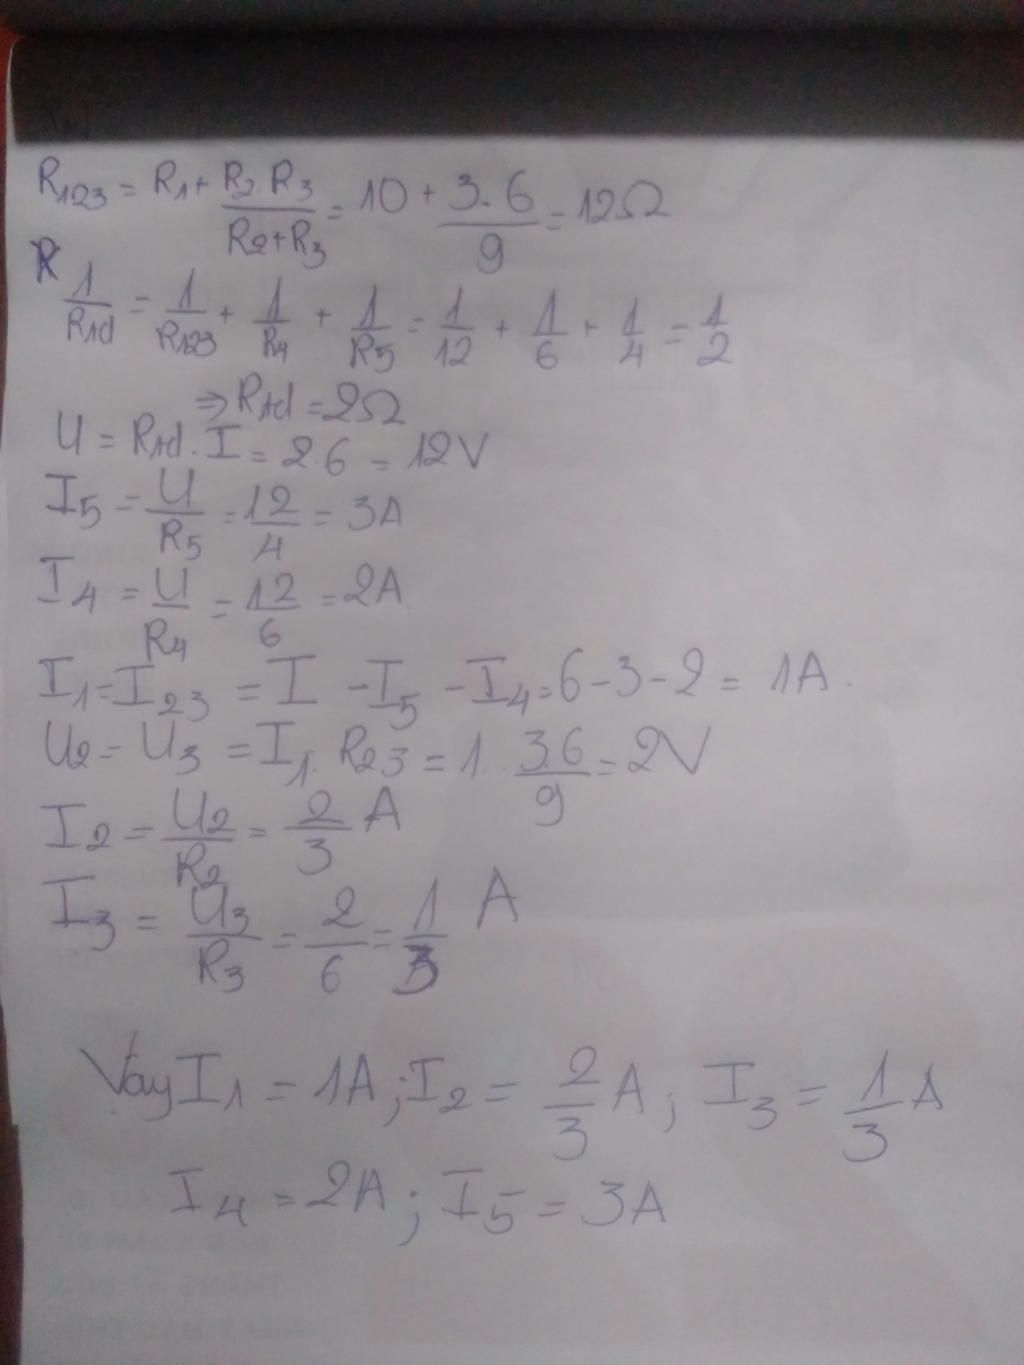 R123 = R1 + R2 R3 / R2+R3 = 10 + 3.6 / 9 = 12Ω
1/Rtd = 1/R123 + 1/R4 + 1/R5 = 1/12 + 1/6 + 1/4 = 1/2
⇒ Rtd = 2Ω
U = Rtd . I = 2 6 = 12V
I5 = U/R5 = 12/4 = 3A
I4 = U/R4 = 12/6 = 2A
I1 = I23 = I - I5 - I4 = 6 - 3 - 2 = 1A.
U2 = U3 = I1. R23 = 1. 3.6/9 = 2V
I2 = U2/R2 = 2/3 A
I3 = U3/R3 = 2/6 = 1/3 A
Vay I1 = 1A ; I2 = 2/3 A ; I3 = 1/3 A
I4 = 2A ; I5 = 3A